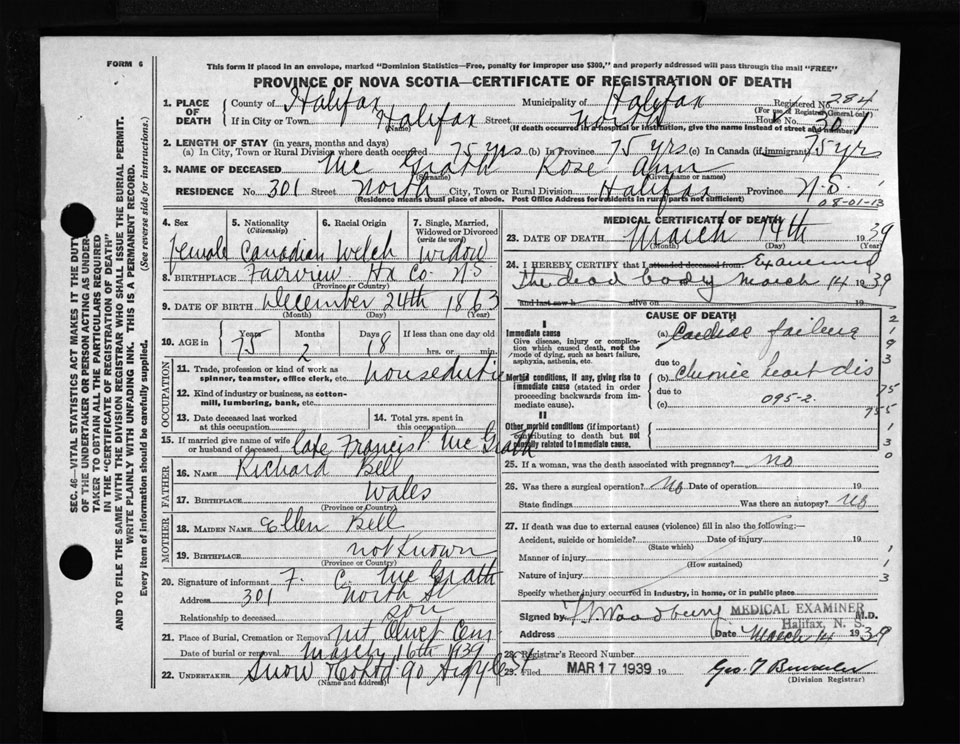 FORM 6
This form if placed in an envelope, marked "Dominion Statistics—Free, penalty for improper use $300," and properly addressed will pass through the mail "FREE"
PROVINCE OF NOVA SCOTIA—CERTIFICATE OF REGISTRATION OF DEATH
1. PLACE OF DEATH County of Halifax Municipality of Halifax Registered No. 284
(For use of Registrar General only)
If in City or Town Halifax Street North House No. 301
(Name) (If death occurred in a hospital or institution, give the name instead of street and number)
2. LENGTH OF STAY (in years, months and days)
(a) In City, Town or Rural Division where death occurred 75 yrs (b) In Province 75 yrs (c) In Canada (if immigrant) 75 yr
3. NAME OF DECEASED Mc Grath Rose Ann
(Surname) (Given name or names)
RESIDENCE No. 301 Street North City, Town or Rural Division Halifax Province N.S.
(Residence means usual place of abode. Post Office Address for residents in rural parts not sufficient)
08-01-13
4. Sex 5. Nationality (Citizenship) 6. Racial Origin 7. Single, Married, Widowed or Divorced (write the word)
Female Canadian Welch Widow
8. BIRTHPLACE Fairview Hx Co. N S
(Province or Country)
9. DATE OF BIRTH December 24th 1863
(Month) (Day) (Year)
10. AGE in Years Months Days If less than one day
75 2 18 hrs. or min.
OCCUPATION
11. Trade, profession or kind of work as spinner, teamster, office clerk, etc. house duties
12. Kind of industry or business, as cotton-mill, lumbering, bank, etc.
13. Date deceased last worked at this occupation
14. Total yrs. spent in this occupation
15. If married give name of wife or husband of deceased late Francis P Mc Grath
FATHER
16. NAME Richard Bell
17. BIRTHPLACE Wales
(Province or Country)
MOTHER
18. MAIDEN NAME Ellen Bell
19. BIRTHPLACE not Known
(Province or Country)
20. Signature of informant F. C. Mc Grath
Address 301 North St
Relationship to deceased son
21. Place of Burial, Cremation or Removal Mt Olivet Cem
Date of burial or removal March 16th 1939
22. UNDERTAKER Snow & Co Ltd 90 Argyle St
(Name and address)
MEDICAL CERTIFICATE OF DEATH
23. DATE OF DEATH March 14th 1939
(Month) (Day) (Year)
24. I HEREBY CERTIFY that I attended deceased from Examined
the dead body March 14 1939
and last saw h alive on 19
CAUSE OF DEATH
I
Immediate cause
Give disease, injury or complication which caused death, not the mode of dying, such as heart failure, asphyxia, asthenia, etc.
(a) Cardiac failure
due to
Morbid conditions, if any, giving rise to immediate cause (stated in order proceeding backwards from immediate cause).
(b) Chronic heart dis
due to
(c) 095-2.
II
Other morbid conditions (if important) contributing to death but not causally related to immediate cause.
2
1
9
3
75
755
1
3
0
25. If a woman, was the death associated with pregnancy? no
26. Was there a surgical operation? No Date of operation 19
State findings Was there an autopsy? No
27. If death was due to external causes (violence) fill in also the following:—
Accident, suicide or homicide? Date of injury 19
(State which)
Manner of injury
(How sustained)
Nature of injury
Specify whether injury occurred in industry, in home, or in public place
1
1
3
Signed by Woodbury MEDICAL EXAMINER M.D.
Halifax, N. S.
Address Date March 14 1939
28. Registrar's Record Number
29. Filed MAR 17 1939 19 Geo
(Division Registrar)
SEC. 46—VITAL STATISTICS ACT MAKES IT THE DUTY OF THE UNDERTAKER OR PERSON ACTING AS UNDERTAKER TO OBTAIN ALL THE PARTICULARS REQUIRED IN THE "CERTIFICATE OF REGISTRATION OF DEATH" AND TO FILE THE SAME WITH THE DIVISION REGISTRAR WHO SHALL ISSUE THE BURIAL PERMIT.
WRITE PLAINLY WITH UNFADING INK. THIS IS A PERMANENT RECORD.
Every item of information should be carefully supplied. (See reverse side for instructions.)